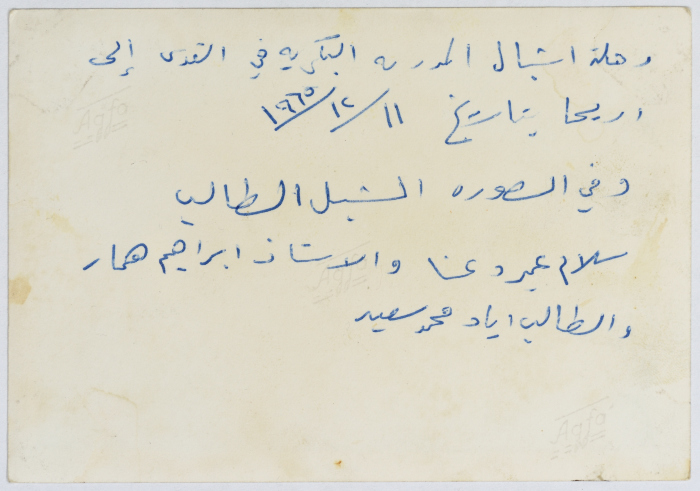 رحلة اشبال المدرسه البكريه في القدس إلى
اريحا بتاريخ ١١/١٢/١٩٦٥
وفي الصوره الشبل الطالب
سلام عيد والاستاذ ابراهيم همار
والطالب اياد محمد سعيد